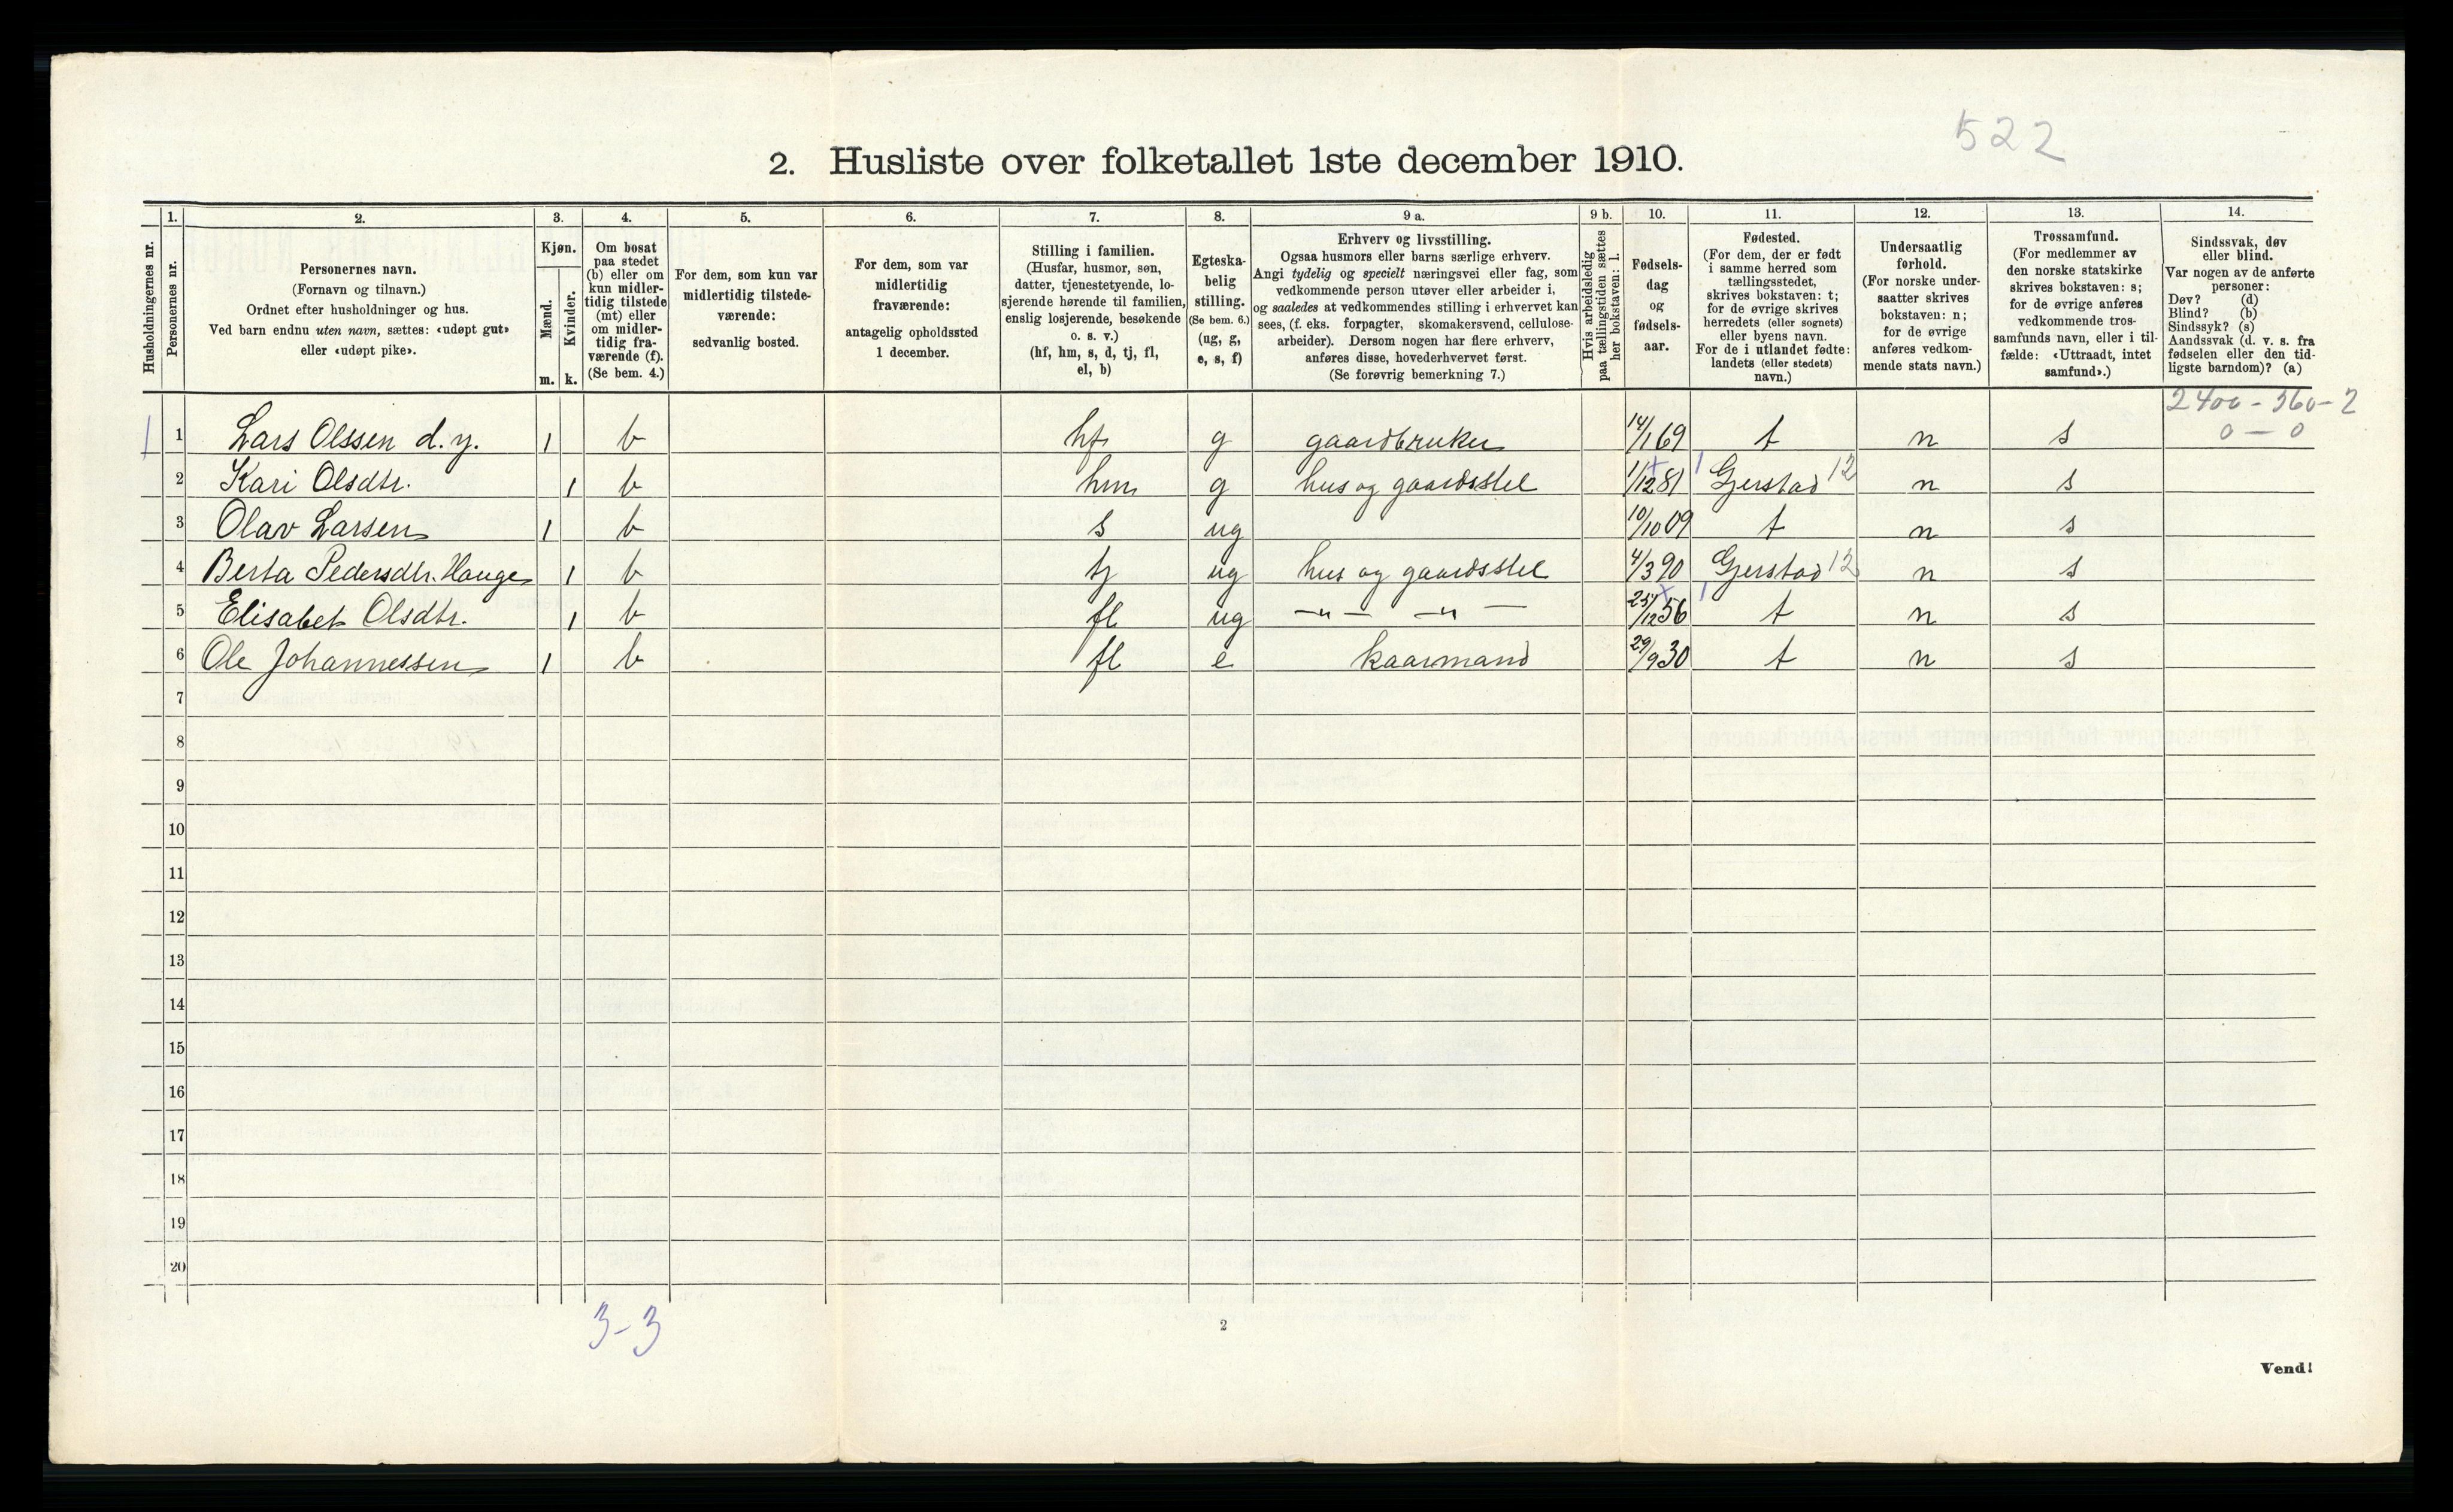 522
2. Husliste over folketallet 1ste december 1910.
Husholdningernes nr.
1. Personernes nr.
2. Personernes navn.
(Fornavn og tilnavn.)
Ordnet efter husholdninger og hus.
Ved barn endnu uten navn, sættes: «udøpt gut»
eller «udøpt pike».
3. Kjøn.
Mænd. Kvinder.
m. k.
4. Om bosat
paa stedet
(b) eller om
kun midler-
tidig tilstede
(mt) eller
om midler-
tidig fra-
værende (f).
(Se bem. 4.)
5. For dem, som kun var
midlertidig tilstede-
værende:
sedvanlig bosted.
6. For dem, som var
midlertidig
fraværende:
antagelig opholdssted
1 december.
7. Stilling i familien.
(Husfar, husmor, søn,
datter, tjenestetyende, lo-
sjerende hørende til familien,
enslig losjerende, besøkende
o. s. v.)
(hf, hm, s, d, tj, fl,
el, b)
8. Egteska-
belig
stilling.
(Se bem. 6.)
(ug, g,
e, s, f)
9 a. Erhverv og livsstilling.
Ogsaa husmors eller barns særlige erhverv.
Angi tydelig og specielt næringsvei eller fag, som
vedkommende person utøver eller arbeider i,
og saaledes at vedkommendes stilling i erhvervet kan
sees, (f. eks. forpagter, skomakersvend, cellulose-
arbeider). Dersom nogen har flere erhverv,
anføres disse, hovederhvervet først.
(Se forøvrig bemerkning 7.)
9 b. Hvis arbeidsledig
paa tællingstiden sættes
her bokstaven: l.
10. Fødsels-
dag
og
fødsels-
aar.
11. Fødested.
(For dem, der er født
i samme herred som
tællingsstedet,
skrives bokstaven: t;
for de øvrige skrives
herredets (eller sognets)
eller byens navn.
For de i utlandet fødte:
landets (eller stedets)
navn.)
12. Undersaatlig
forhold.
(For norske under-
saatter skrives
bokstaven: n;
for de øvrige
anføres vedkom-
mende stats navn.)
13. Trossamfund.
(For medlemmer av
den norske statskirke
skrives bokstaven: s;
for de øvrige anføres
vedkommende tros-
samfunds navn, eller i til-
fælde: «Uttraadt, intet
samfund».)
14. Sindssvak, døv
eller blind.
Var nogen av de anførte
personer:
Døv? (d)
Blind? (b)
Sindssyk? (s)
Aandssvak (d. v. s. fra
fødselen eller den tid-
ligste barndom)? (a)
2400 - 560 - 2
0 - 0
1 1 Lars Olssen d. y. 1 b hf g gaardbruker 14/1 69 t n s
2 Kari Olsdtr. 1 b hm g hus og gaardsstel 1/12 81 Gjerstad 12 n s
3 Olav Larsen 1 b s ug 10/10 09 t n s
4 Berta Pedersdtr. Hauge 1 b tj ug hus og gaardsstel 4/3 90 Gjerstad 12 n s
5 Elisabet Olsdtr. 1 b fl ug —"— —"— 25/12 56 t n s
6 Ole Johannessen 1 b fl e kaarmand 29/9 30 t n s
7
8
9
10
11
12
13
14
15
16
17
18
19
20
3-3
2
Vend!